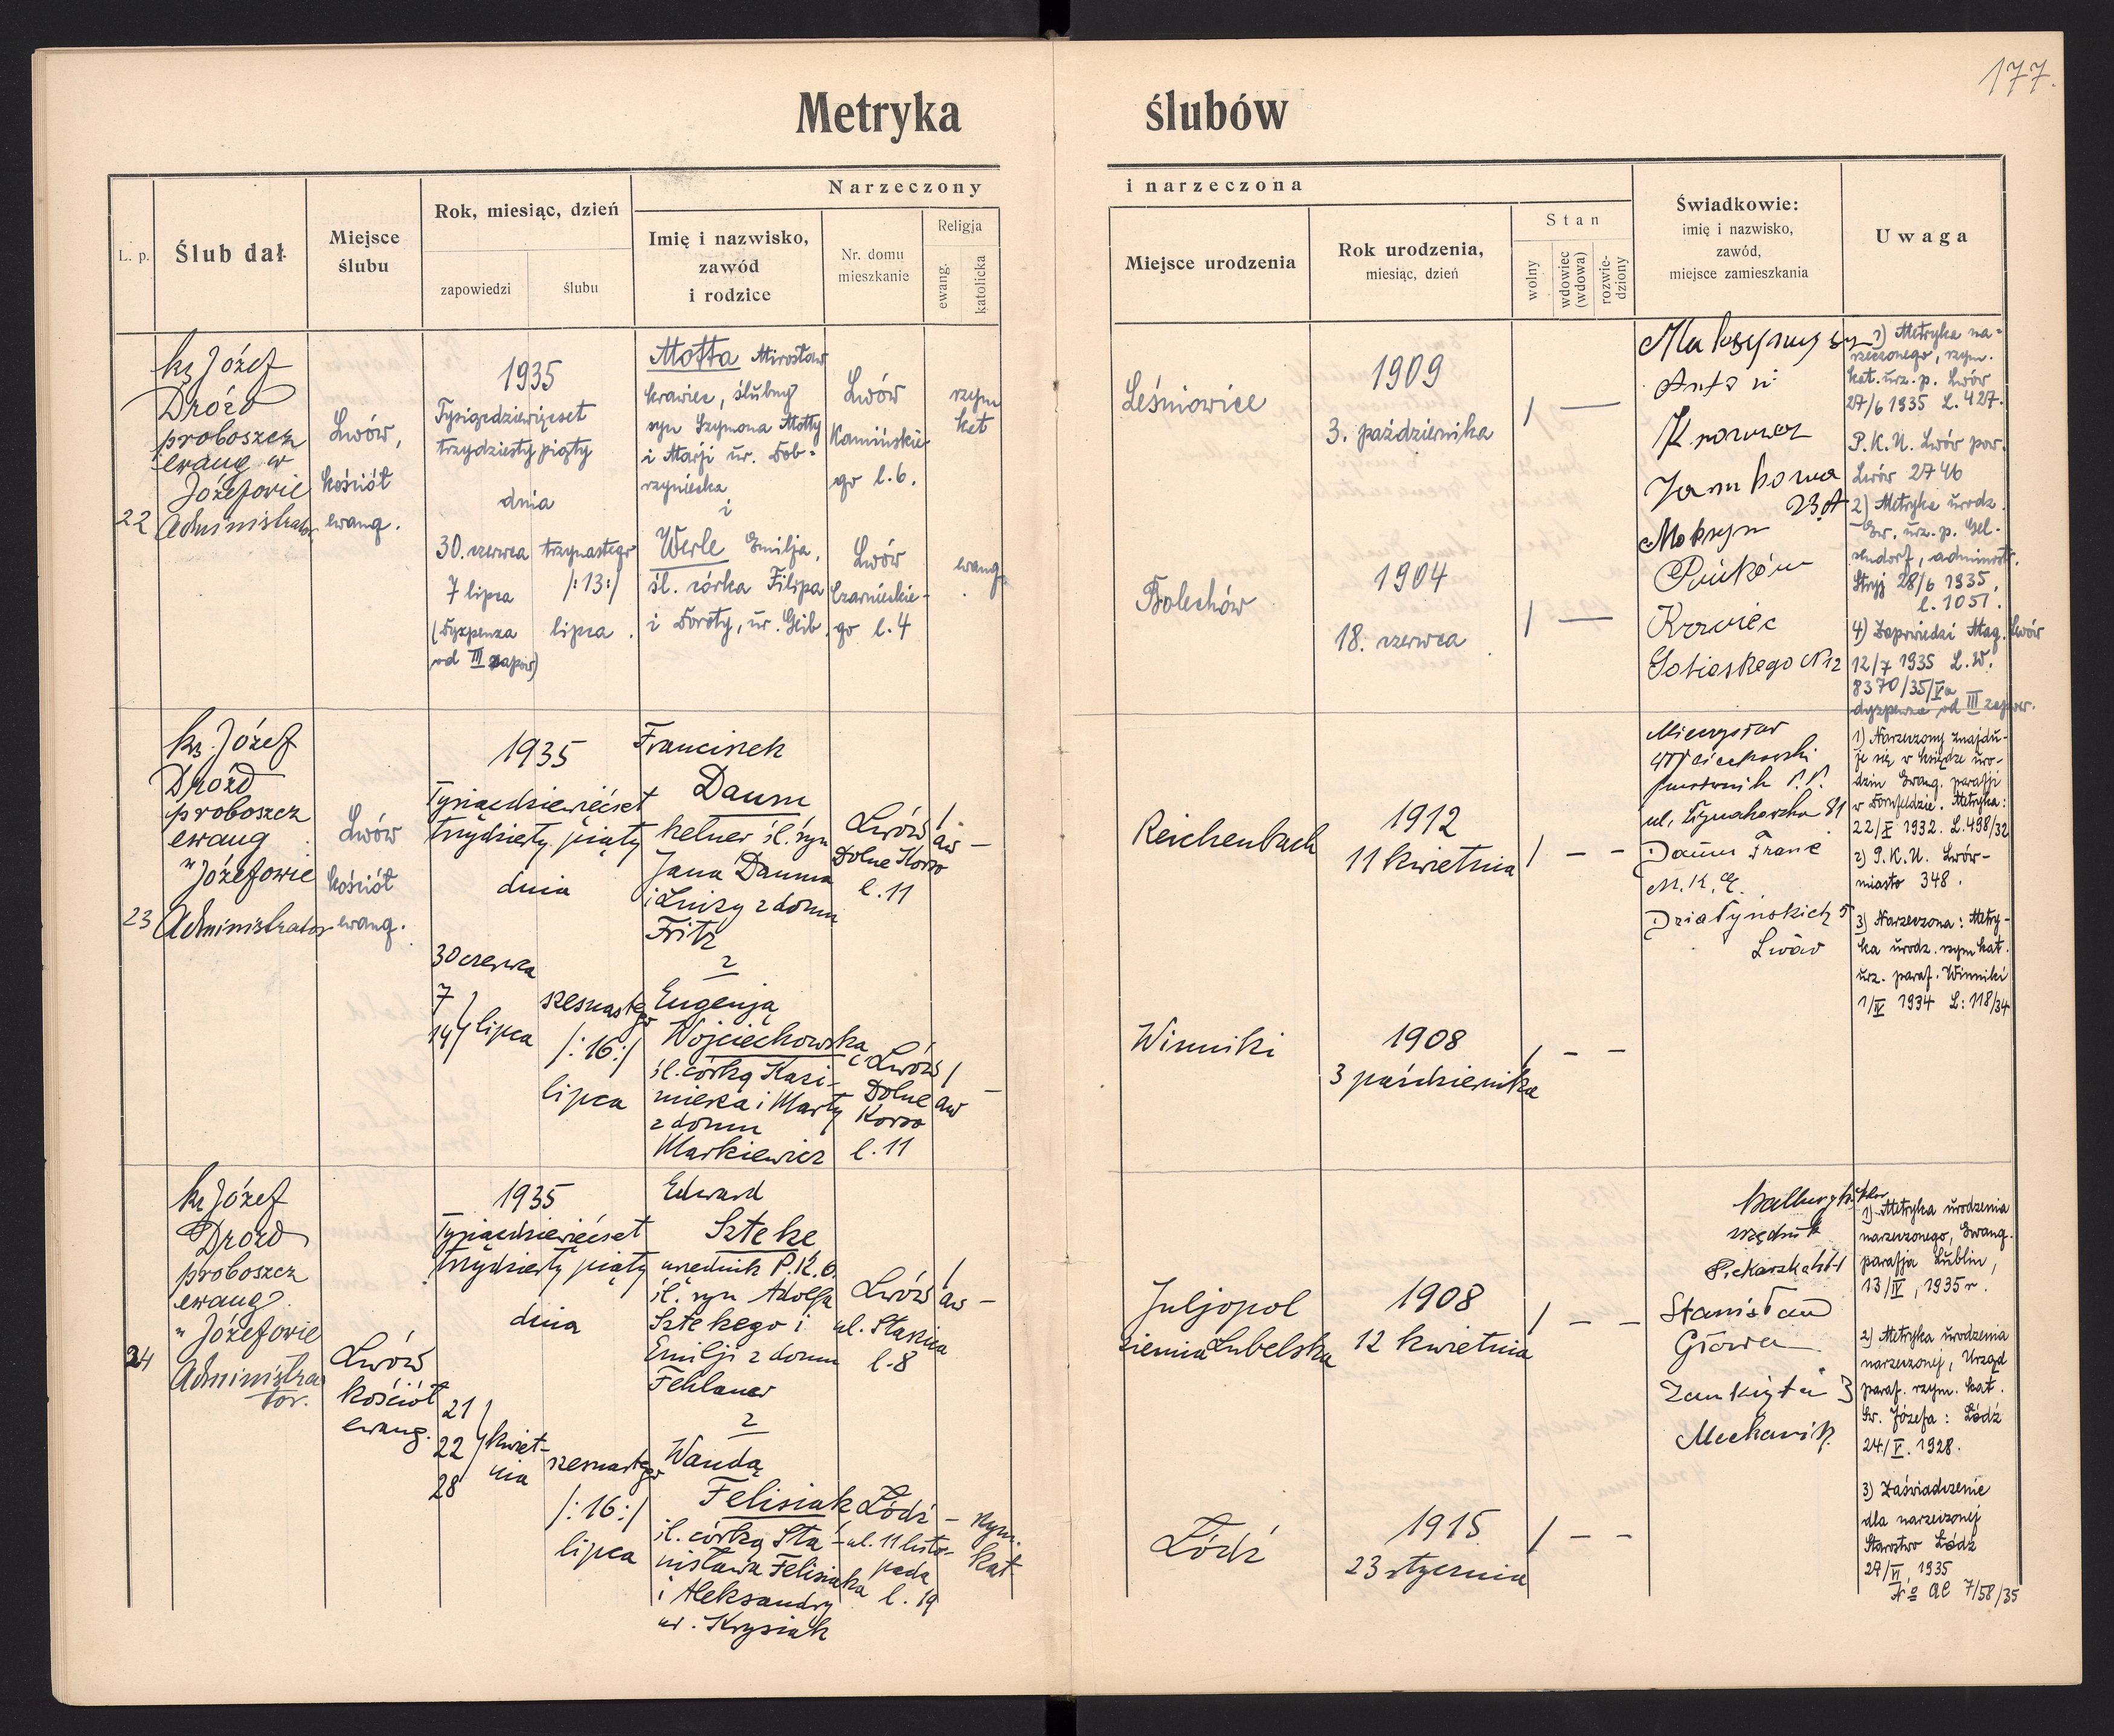 177.
Metryka ślubów
L. p.
Ślub dał
Miejsce
ślubu
Rok, miesiąc, dzień
zapowiedzi
ślubu
Narzeczony
Imię i nazwisko,
zawód
i rodzice
Nr. domu
mieszkanie
Religja
ewang.
katolicka
i narzeczona
Miejsce urodzenia
Rok urodzenia,
miesiąc, dzień
Stan
wolny
wdowiec
(wdowa)
rozwie-
dziony
Świadkowie:
imię i nazwisko,
zawód,
miejsce zamieszkania
Uwaga
22
ks Józef
Drózd
proboszcz
ewang w
Józefowie
Administrator
Lwów,
kościół
ewang.
1935
Tysiącdziewięćset
trzydziesty piąty
dnia
30. czerwca
7 lipca
(Dyspenza
od III zapow)
trzynastego
/:13:/
lipca.
Motta Mirosław
krawiec, ślubny
syn Szymona Motty
i Marji ur. Dob-
rzyniecka
i
Werle Emilja,
śl. córka Filipa
i Doroty, ur. Geib.
Lwów
Kamińskie-
go l. 6.
Lwów
Czarnieckie-
go l. 4
rzym
kat
ewang.
Leśniowice
Bolechów
1909
3. października
1904
18. czerwca
/ —
/ —
Antoni
Janowa
23A
Maksym
Krawiec
Sobieskego N 12
1) Metryka na-
rzeczonego, rzym.
kat. urz. p. Lwów
27/6 1935 L. 427.
P.K.U. Lwów pow.
Lwów 2746
2) Metryka urodz.
Ew. urz. p. Gel-
sendorf, administr.
Stryj 28/6 1935,
l. 1051.
4) Zapowiedzi Mag. Lwów
12/7 1935 L.W.
8370/35/Va
dyspenza od III zapow.
23
ks. Józef
Drózd
proboszcz
ewang
w Józefowie
Administrator
Lwów
kościół
ewang.
1935
Tysiącdziewięćset
trzydziesty piąty
dnia
30 czerwca
7
14 lipca
szesnastego
/:16:/
lipca
Franciszek
Daum
kelner śl. syn
Jana Dauma
i Luizy z domu
Fritz
z
Eugenją
Wojciechowską
śl. córką Kazi-
mierza i Marty
z domu
Markiewicz
Lwów
Dolne Korso
l. 11
Lwów
Dolne
Korso
l. 11
/
aw —
/
aw —
Reichenbach
Winniki
1912
11 kwietnia
1908
3 października
/ – –
/ – –
Mieczysław
Wojciechowski
P.P.
ul. Łyczakowska 81
Daum Franc
M.K.E.
Działyńskich 5
Lwów
1) Narzeczony znajdu-
je się w księdze uro-
dzin Ewang. parafji
w Dornfeldzie. Metryka:
22/X 1932. L. 498/32
2) P.K.U. Lwów-
miasto 348.
3) Narzeczona: Metry-
ka urodz. rzym kat.
urz. paraf. Winniki
1/IV 1934 L: 118/34
24
ks Józef
Drozd
proboszcz
ewang.
w Józefowie
Administra
tor.
Lwów
kościół
ewang.
1935
Tysiącdziewięćset
trzydziesty piąty
dnia
21
22 kwiet-
nia
28
szesnastego
/:16:/
lipca
Edward
Szteke
urzędnik P.K.O.
śl. syn Adolfa
Sztekego i
Emilji z domu
Fehlauer
z
Wandą
Felisiak
śl. córką Sta-
nisława Felisiaka
i Aleksandry
ur. Krysiak
Lwów
ul. Staszica
l. 8
Łódź
ul. 11 listo-
pada
l. 19
/
aw —
– rzym.
kat
Juljopol
ziemia Lubelska
Łódź
1908
12 kwietnia
1915
23 stycznia
/ – –
/ – –
urzędnik
Piekarska
Stanisław
Głowa
Zamknięta 3
Mechanik.
1) Metryka urodzenia
narzeczonego, Ewang.
parafja Lublin,
13/IV, 1935 r.
2) Metryka urodzenia
narzeczonej, Urząd
paraf. rzym. kat.
Św. Józefa: Łódź
24/V. 1928.
3) Zaświadczenie
dla narzeczonej
Starostwo Łódź
29/VI, 1935
No AC 7/58/35